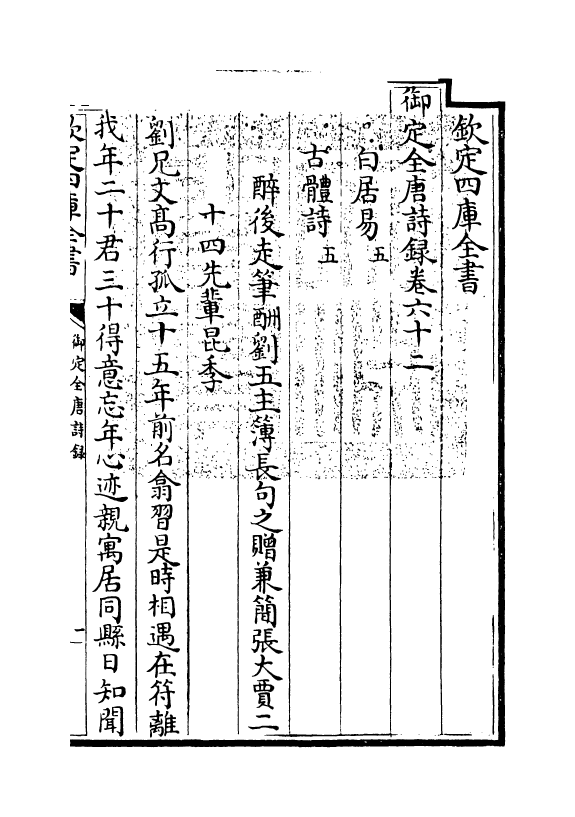 欽定四庫全書
御定全唐詩録卷六十二
白居易五
古體詩五
醉後走筆酬劉五主簿長句之贈兼簡張大賈二
十四先輩昆季
劉兄文髙行孤立十五年前名翕習是時相遇在符離
我年二十君三十得意忘年心迹親寓居同縣日知聞
欽定四庫全書
御定全唐詩録
一